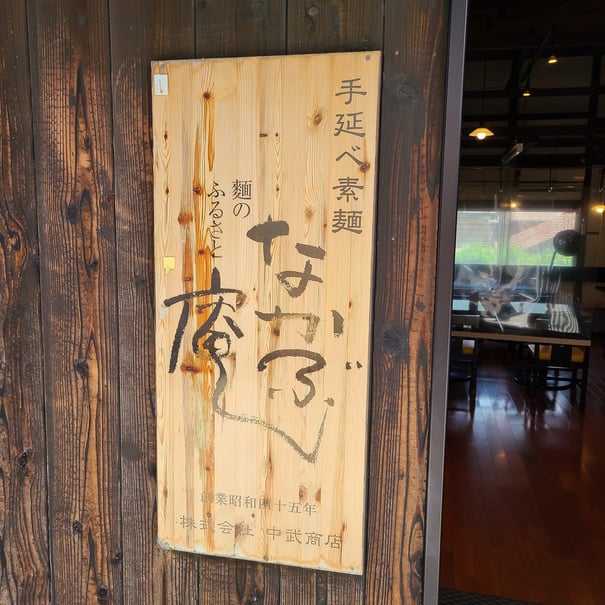 手延べ素麺
麺の
ふるさと
なかぶ
庵
創業昭和四十五年
株式会社 中武商店